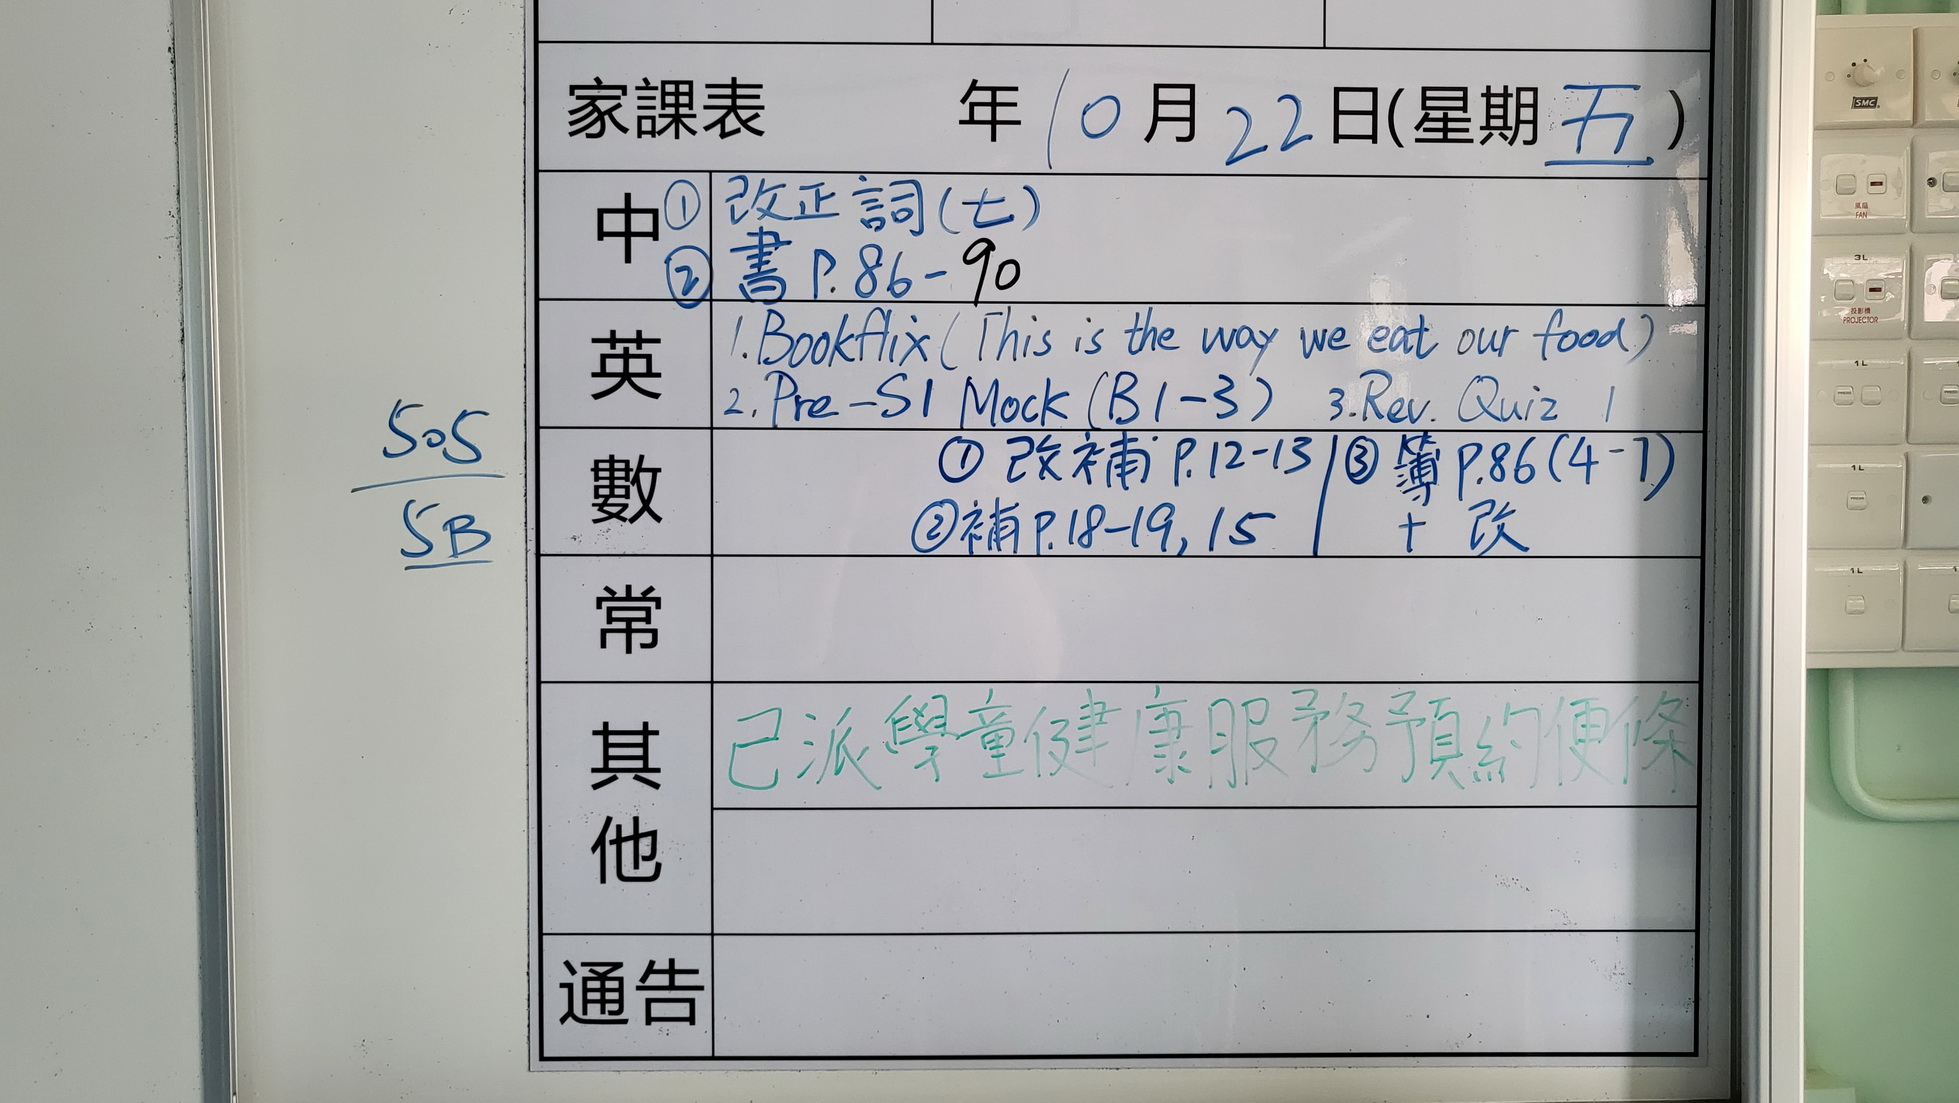 家課表 年10月22日(星期五)
中 ① 改正詞(七)
② 書P.86-90
英 1.Bookflix(This is the way we eat our food)
2.Pre-S1 Mock (B1-3) 3.Rev. Quiz 1
數 ① 改補P.12-13 ③ 簿P.86(4-7)
②補P.18-19, 15 + 改
505
5B
常
其他 己派學童健康服務預約便條
通告
SMC
風扇
FAN
3L
投影機
PROJECTOR
1L
1L
1L